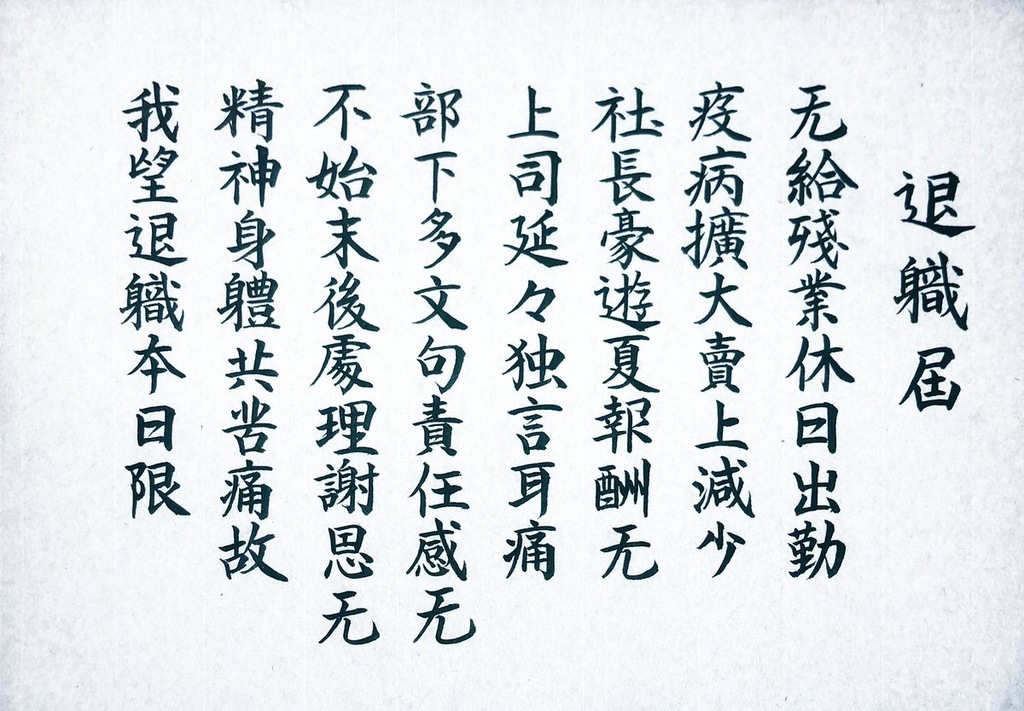 退軄届
无給殘業休日出勤
疫病擴大賣上減少
社長豪遊夏報酬无
上司延々独言耳痛
部下多文句責任感无
不始末後處理謝恩无
精神身軆共苦痛故
我望退軄本日限